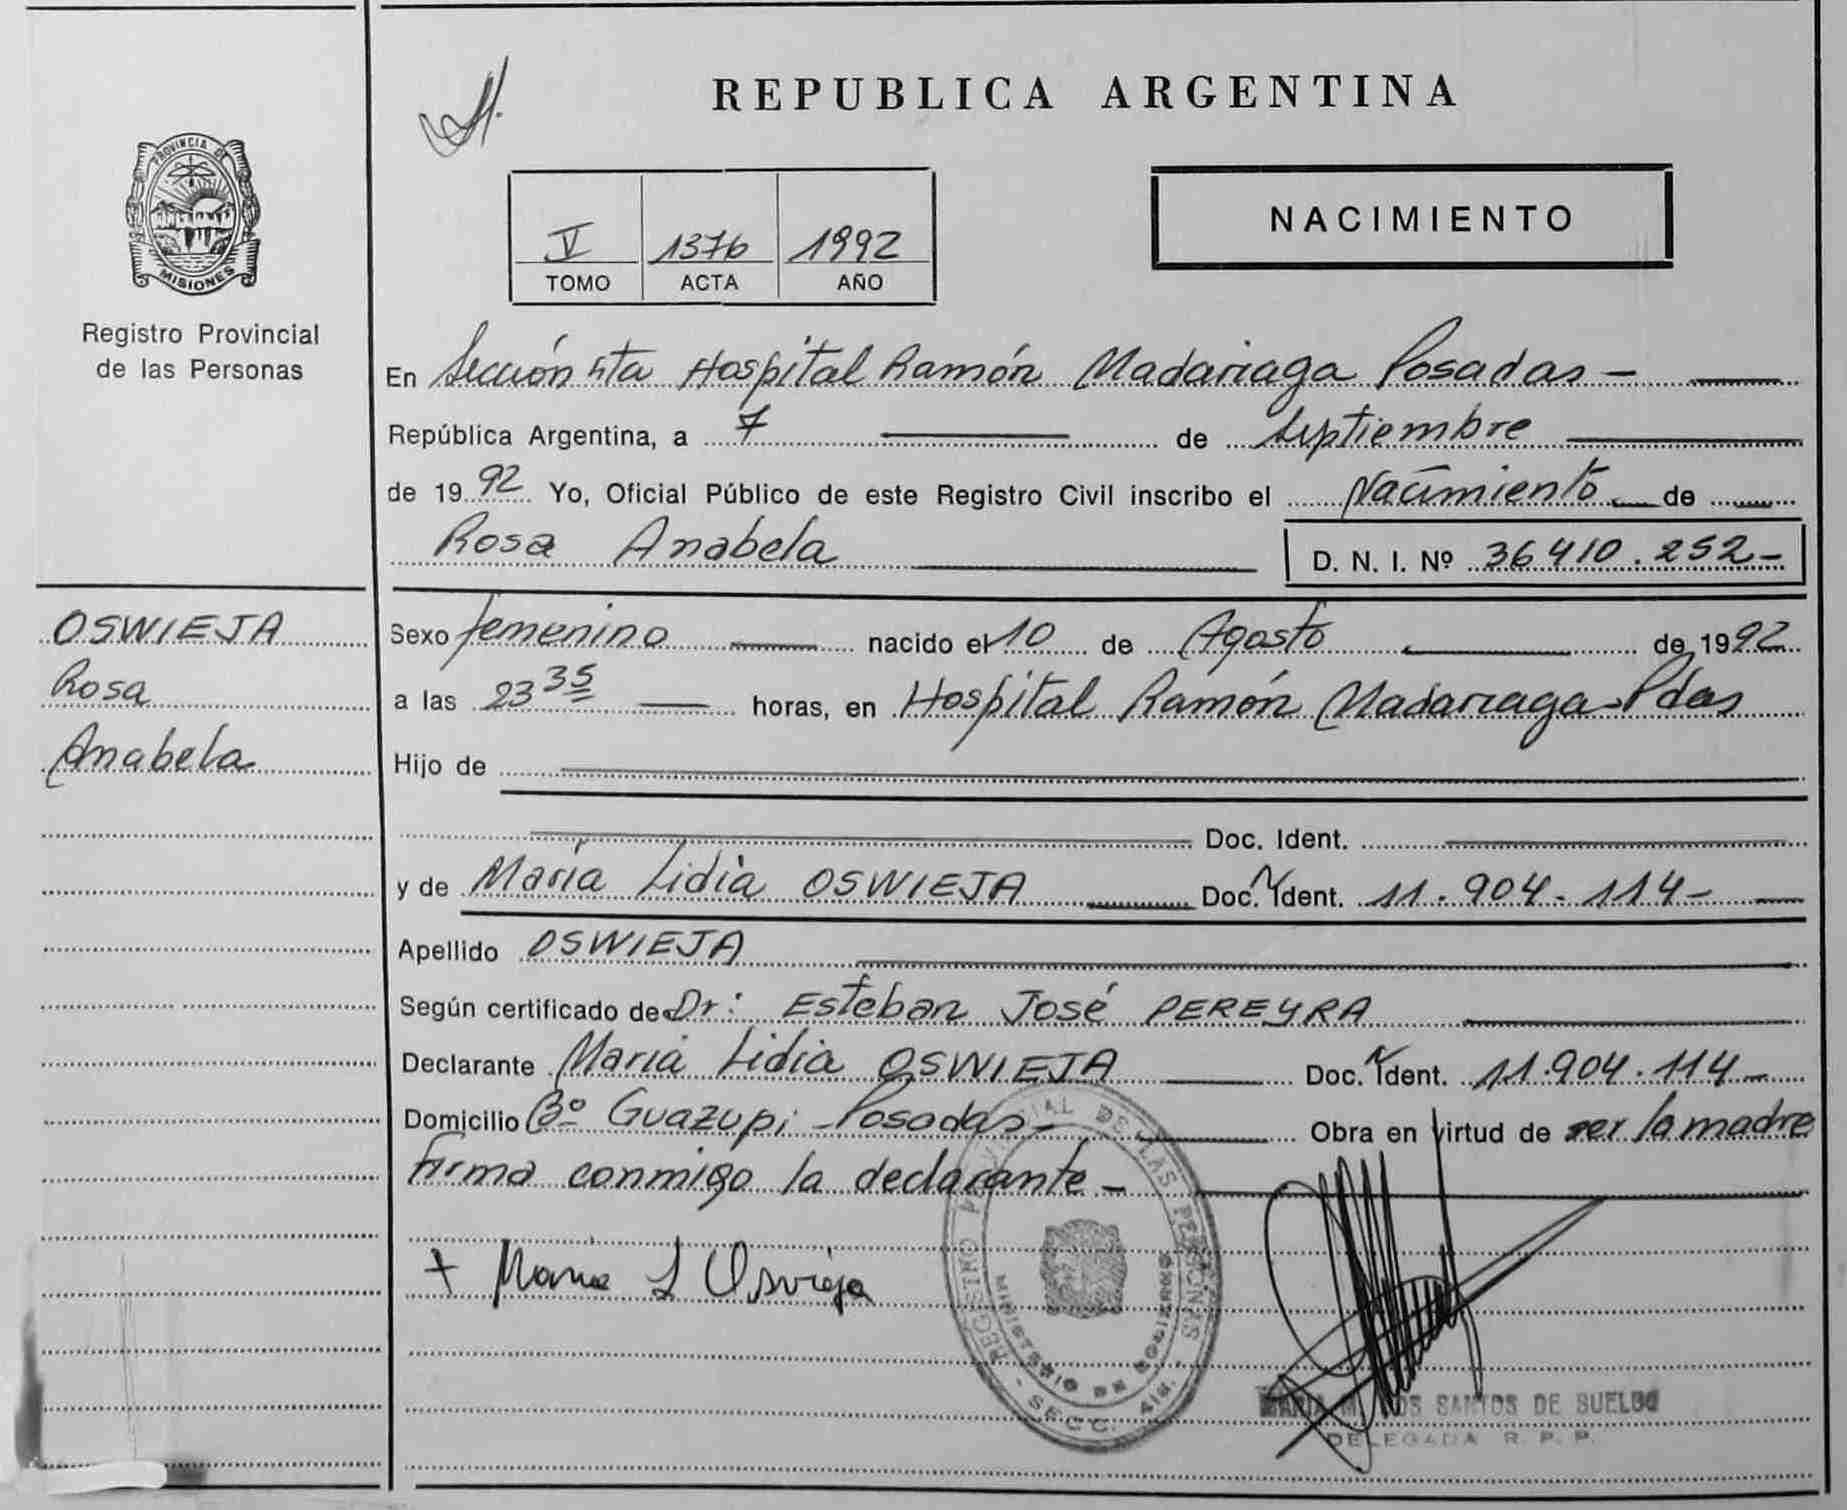 REPUBLICA ARGENTINA
PROVINCIA DE
MISIONES
Registro Provincial
de las Personas
V 1376 1992
TOMO ACTA AÑO
NACIMIENTO
En Sección 4ta Hospital Ramón Madariaga Posadas -
República Argentina, a 7 de Septiembre
de 1992 Yo, Oficial Público de este Registro Civil inscribo el Nacimiento de
Rosa Anabela D. N. I. Nº 36410.252-
OSWIEJA
Rosa
Anabela
Sexo femenino nacido el 10 de Agosto de 1992
a las 23 35 horas, en Hospital Ramón Madariaga-Pdas
Hijo de
Doc. Ident.
y de María Lidia OSWIEJA Doc. Ident. 11.904.114-
Apellido OSWIEJA
Según certificado de Dr: Esteban José PEREYRA
Declarante María Lidia OSWIEJA Doc. Ident. 11.904.114-
Domicilio Bº Guazupi -Posadas- Obra en virtud de ser la madre
firma conmigo la declarante-
+ Maria L Oswieja
REGISTRO PROVINCIAL DE LAS PERSONAS
MINISTERIO DE GOBIERNO
SECC. 4ta.
MARIA M. DOS SANTOS DE SUELDO
DELEGADA R. P. P.